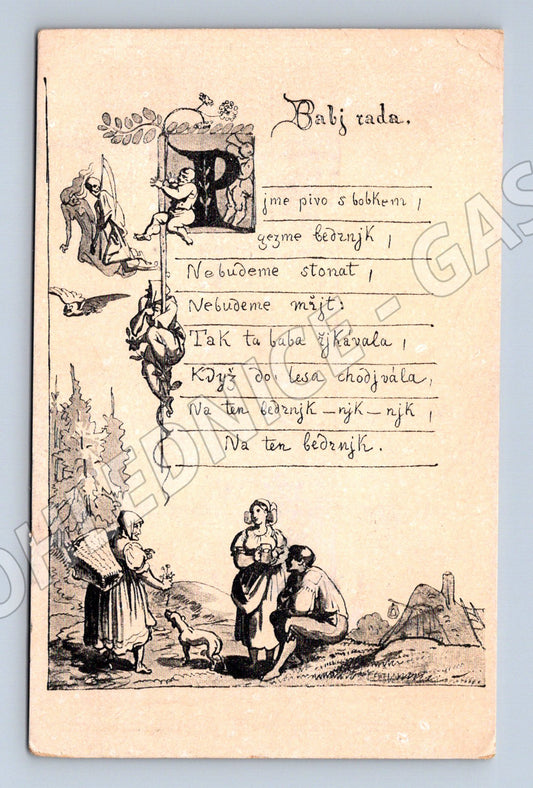 Babj rada.
Pjme pivo s bobkem,
gezme bedrnjk,
Nebudeme stonat,
Nebudeme mřjt:
Tak ta baba řjkávala,
Když do lesa chodjvála,
Na ten bedrnjk–njk–njk,
Na ten bedrnjk.
POHLEDNICE - GAS